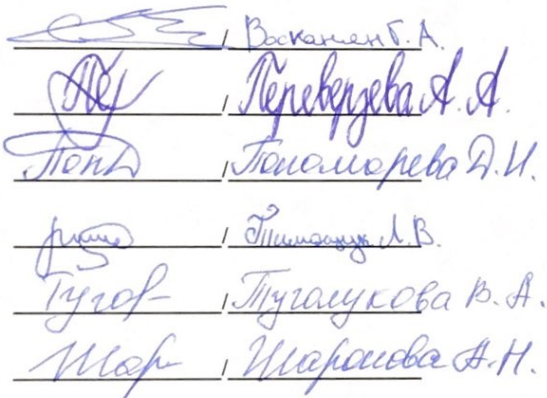 / Восканян Г. А.
/ Переверзева А. А.
/ Пономарева Д. И.
/ Тимощук Л. В.
Тугов- / Туголукова В. А.
Шар / Шаронова А. Н.